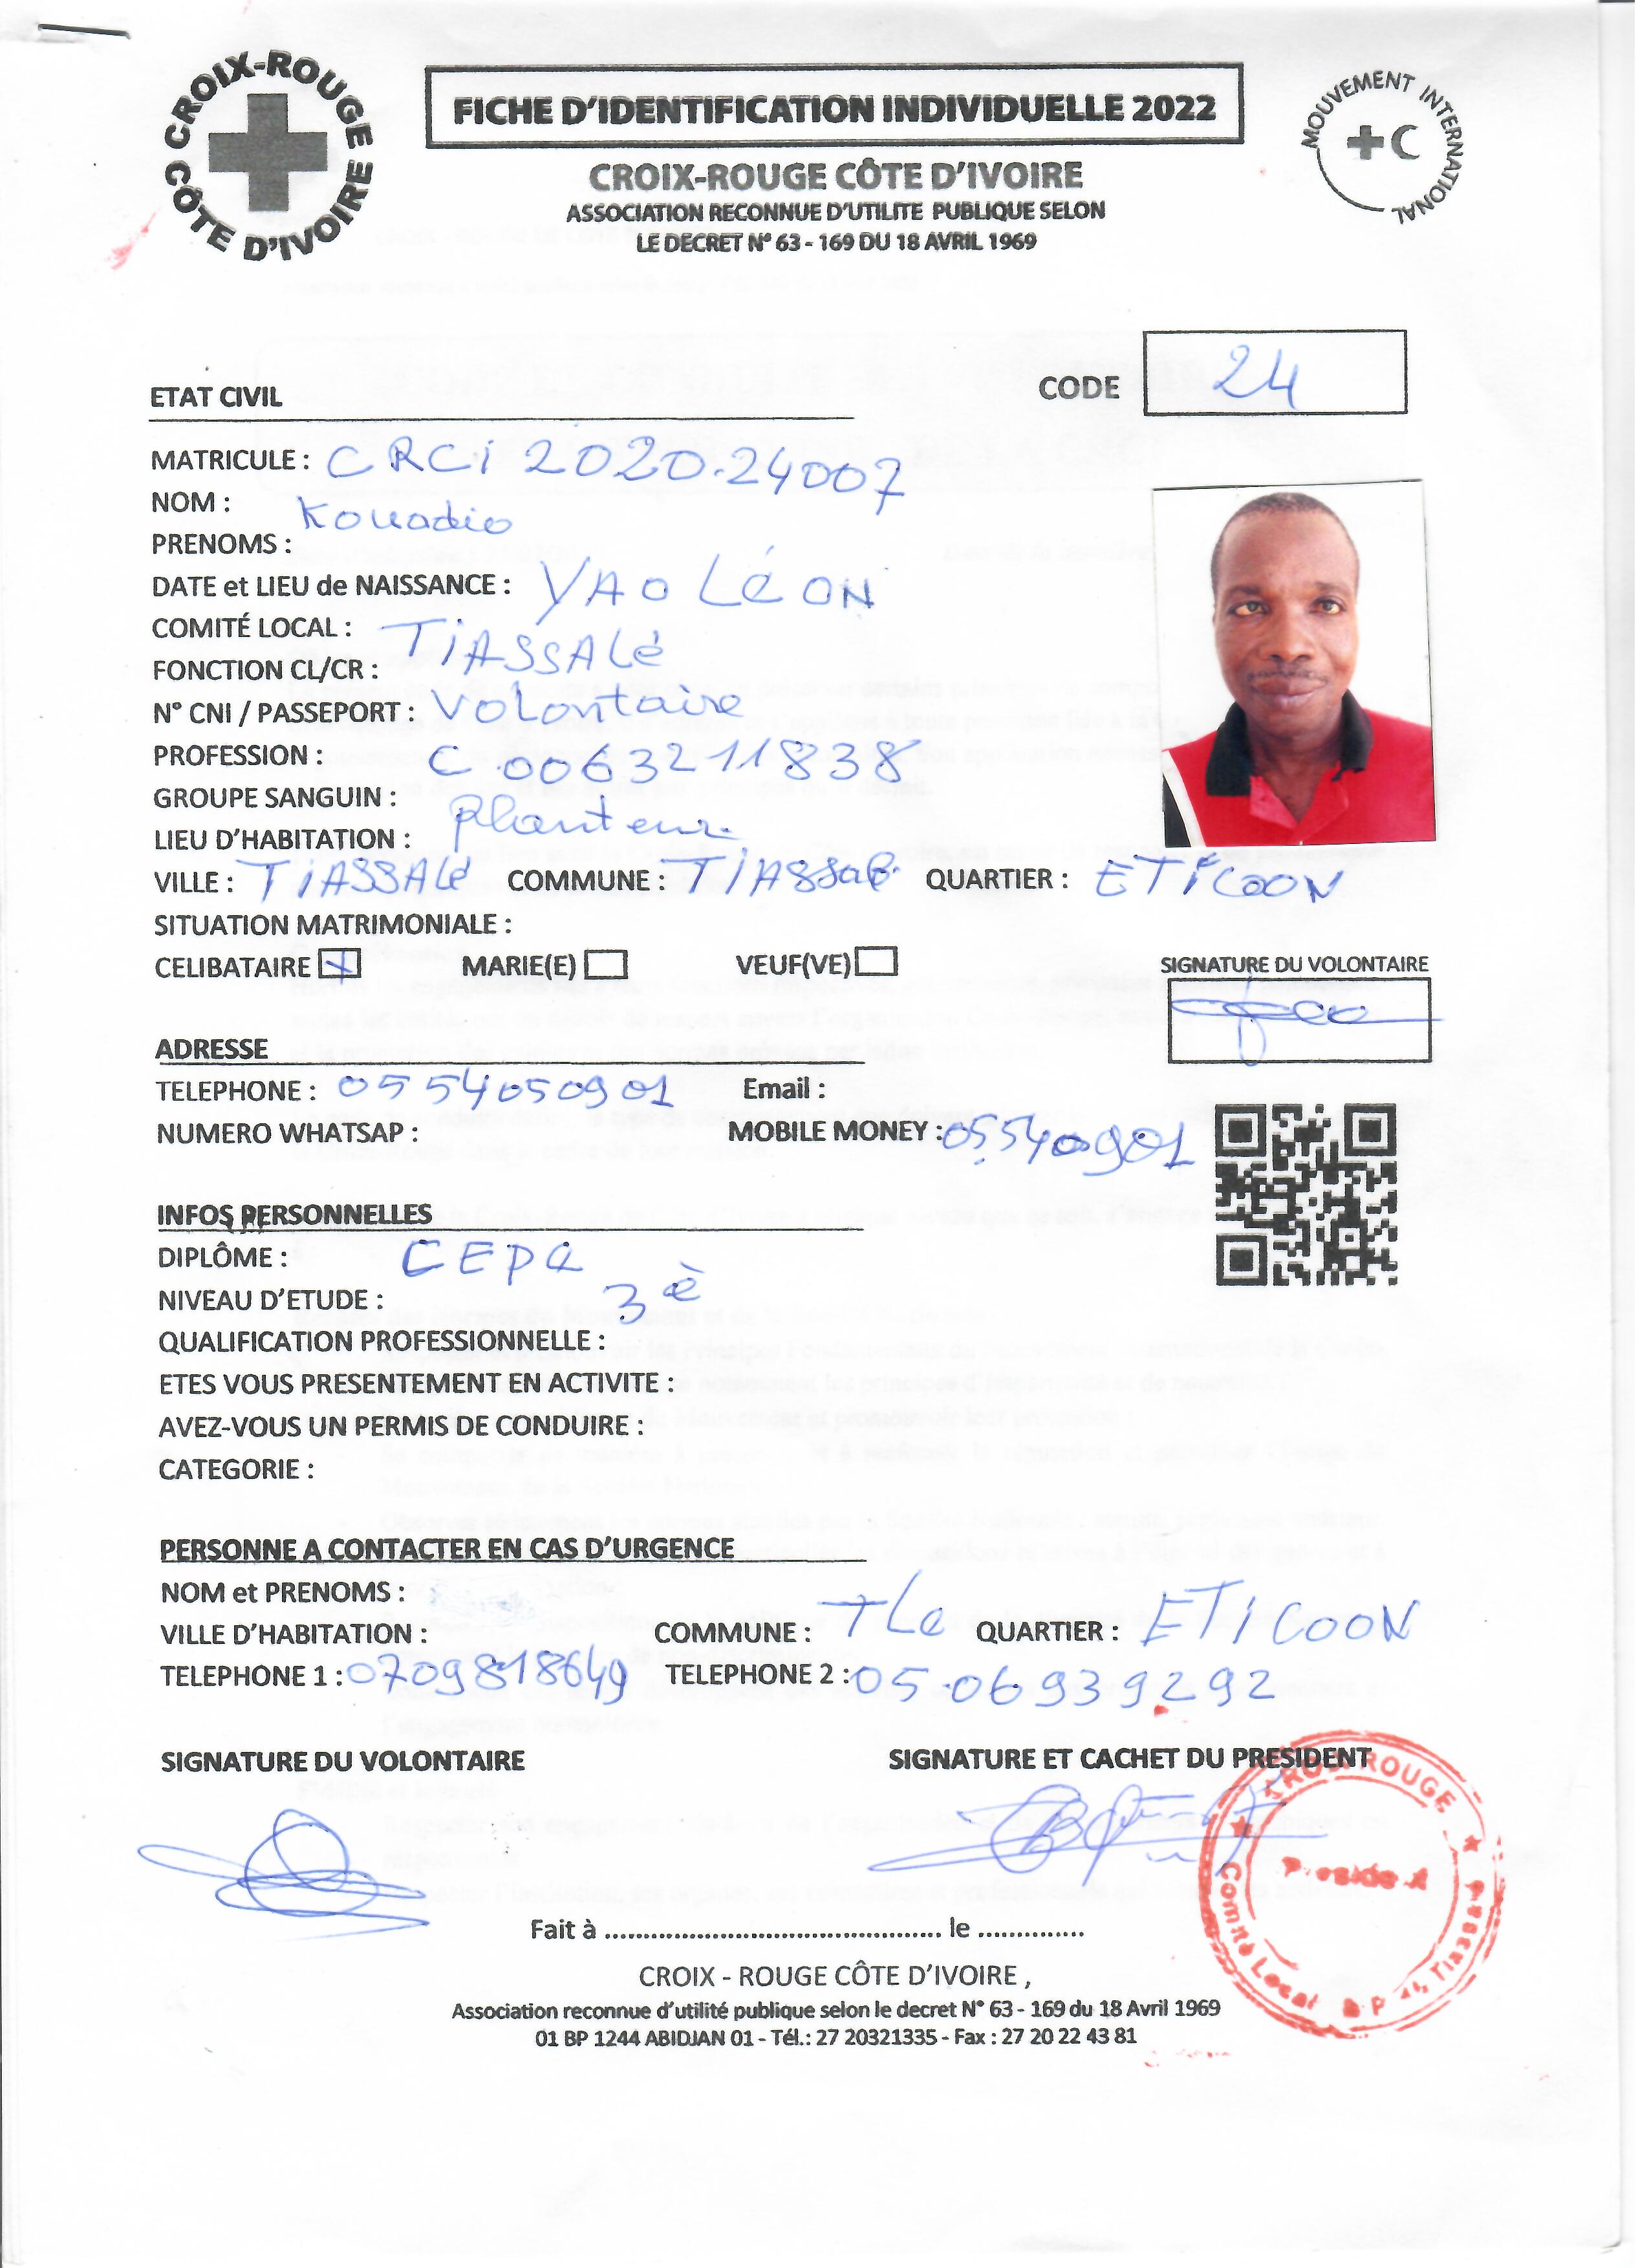 CROIX-ROUGE CÔTE D'IVOIRE
FICHE D'IDENTIFICATION INDIVIDUELLE 2022
MOUVEMENT INTERNATIONAL
CROIX-ROUGE CÔTE D'IVOIRE
ASSOCIATION RECONNUE D'UTILITE PUBLIQUE SELON
LE DECRET N° 63 - 169 DU 18 AVRIL 1969
ETAT CIVIL
CODE 24
MATRICULE : CRCi 2020.24007
NOM : Kouadio
PRENOMS :
DATE et LIEU de NAISSANCE : YAO LÉON
COMITÉ LOCAL : TiASSALé
FONCTION CL/CR :
N° CNI / PASSEPORT : Volontaire
PROFESSION : C 0063211838
GROUPE SANGUIN :
LIEU D'HABITATION : planteur
VILLE : TiASSALé COMMUNE : TiASSalé QUARTIER : ETiCOON
SITUATION MATRIMONIALE :
CELIBATAIRE X MARIE(E) VEUF(VE)
SIGNATURE DU VOLONTAIRE
ADRESSE
TELEPHONE : 0554050901 Email :
NUMERO WHATSAP : MOBILE MONEY : 05540901
INFOS PERSONNELLES
DIPLÔME : CEPE
NIVEAU D'ETUDE : 3è
QUALIFICATION PROFESSIONNELLE :
ETES VOUS PRESENTEMENT EN ACTIVITE :
AVEZ-VOUS UN PERMIS DE CONDUIRE :
CATEGORIE :
PERSONNE A CONTACTER EN CAS D'URGENCE
NOM et PRENOMS :
VILLE D'HABITATION : COMMUNE : TLé QUARTIER : ETiCOON
TELEPHONE 1 : 0709818649 TELEPHONE 2 : 05.06939292
SIGNATURE DU VOLONTAIRE
SIGNATURE ET CACHET DU PRESIDENT
CROIX ROUGE
Comité Local
Fait à ............................................ le ..............
CROIX - ROUGE CÔTE D'IVOIRE ,
Association reconnue d'utilité publique selon le decret N° 63 - 169 du 18 Avril 1969
01 BP 1244 ABIDJAN 01 - Tél.: 27 20321335 - Fax : 27 20 22 43 81